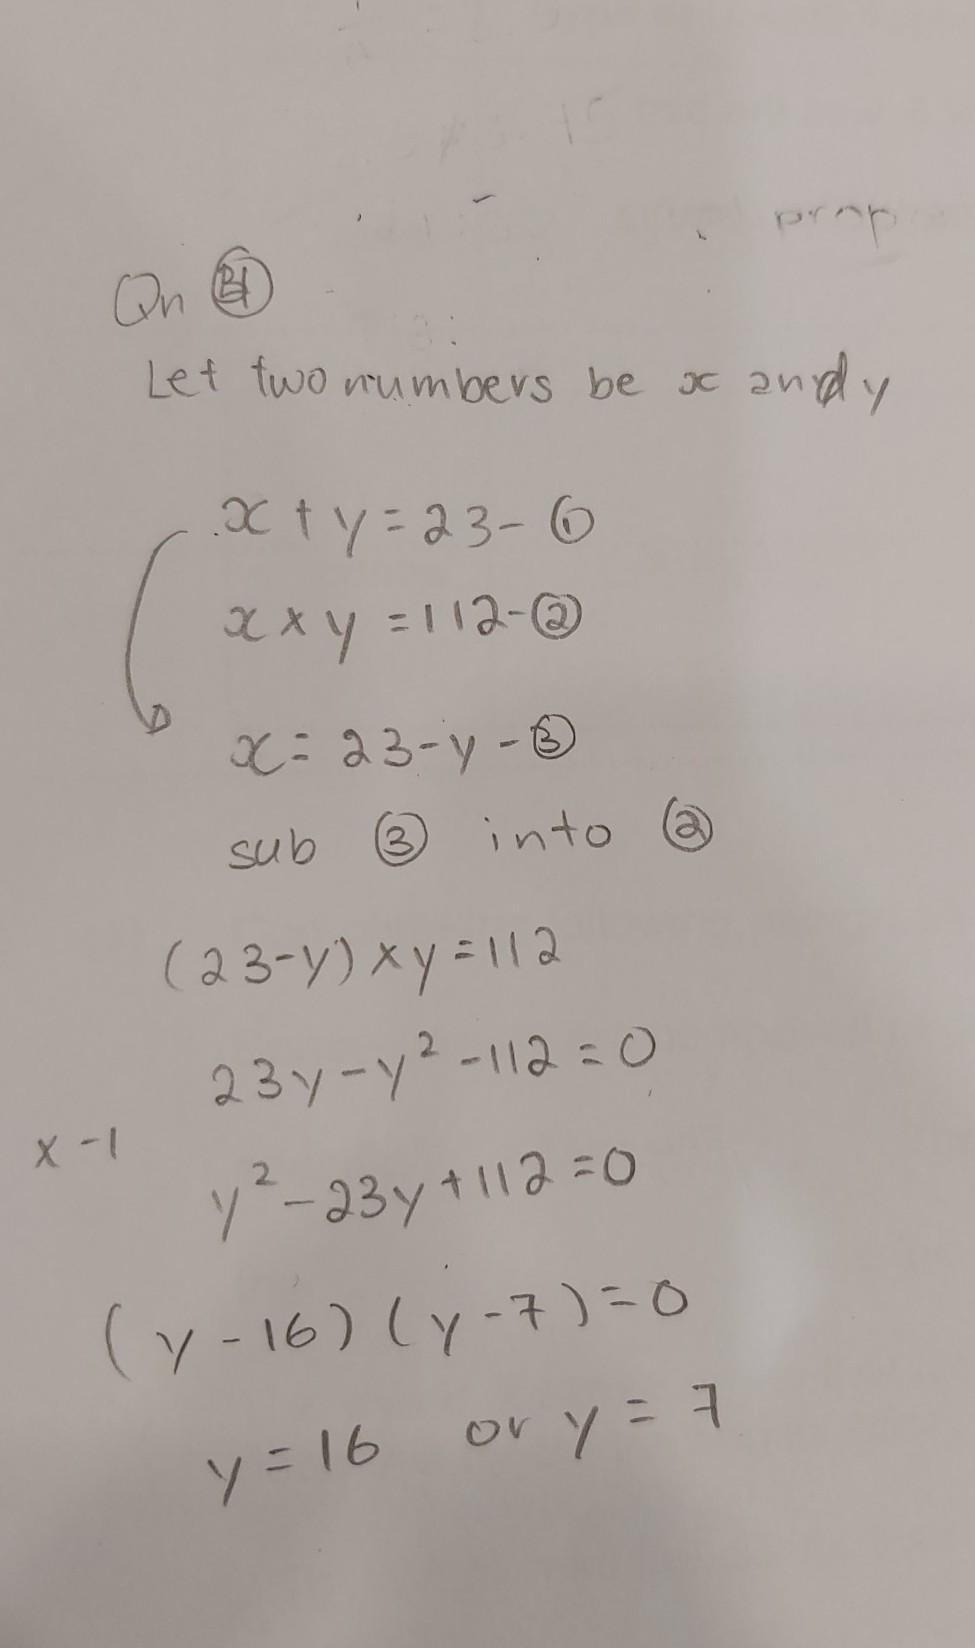 Qn ④
Let two numbers be x and y
x + y = 23 - ①
x × y = 112 - ②
x = 23 - y - ③
sub ③ into ②
(23 - y) × y = 112
23y - y² - 112 = 0
x -1
y² - 23y + 112 = 0
(y - 16) (y - 7) = 0
y = 16 or y = 7